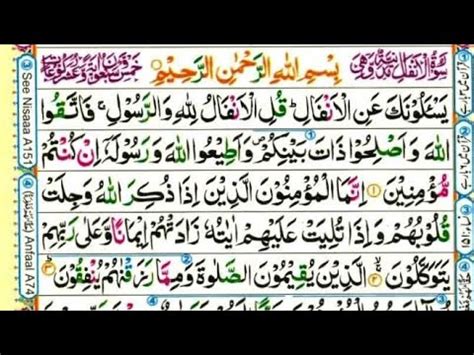 سورة الانفال مدنية وهي
بِسْمِ اللّٰهِ الرَّحْمٰنِ الرَّحِيْمِ
يَسْـَٔلُوْنَكَ عَنِ الْاَنْفَالِ ؕ قُلِ الْاَنْفَالُ لِلّٰهِ وَالرَّسُوْلِ ۚ فَاتَّقُوا
اللّٰهَ وَاَصْلِحُوْا ذَاتَ بَيْنِكُمْ ۪ وَاَطِيْعُوا اللّٰهَ وَرَسُوْلَهٗۤ اِنْ كُنْتُمْ
مُّؤْمِنِيْنَ ۱ اِنَّمَا الْمُؤْمِنُوْنَ الَّذِيْنَ اِذَا ذُكِرَ اللّٰهُ وَجِلَتْ
قُلُوْبُهُمْ وَاِذَا تُلِيَتْ عَلَيْهِمْ اٰيٰتُهٗ زَادَتْهُمْ اِيْمَانًا وَّعَلٰى رَبِّهِمْ
يَتَوَكَّلُوْنَ ۲ الَّذِيْنَ يُقِيْمُوْنَ الصَّلٰوةَ وَمِمَّا رَزَقْنٰهُمْ يُنْفِقُوْنَ
See Nisaaa A151
Anfaal A74